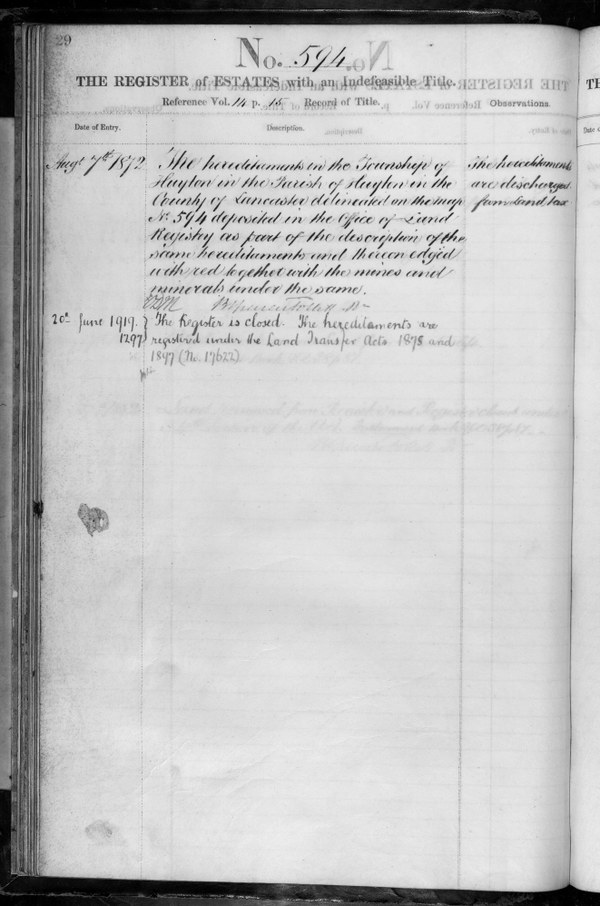 29
No. 594.
THE REGISTER of ESTATES with an Indefeasible Title.
Reference Vol. 14 p. 15 Record of Title. Observations.
Date of Entry. Description.
Augt 7th 1872 The hereditaments in the Township of
Huyton in the Parish of Huyton in the
County of Lancaster delineated on the map
No. 594 deposited in the Office of Land
Registry as part of the description of the
same hereditaments and thereon edged
with red together with the mines and
minerals under the same.
The hereditaments
are discharged
from Land tax
20th June 1919. } The Register is closed. The hereditaments are
1297 } registered under the Land Transfer Acts 1875 and
1897 (No. 17622)